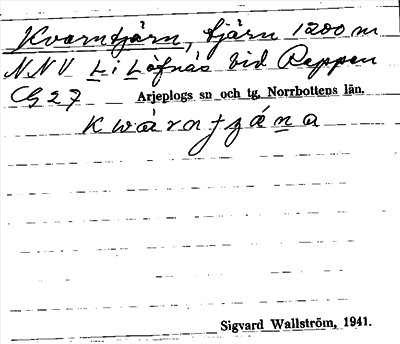 Kvarntjärn, tjärn 1200 m
NNV Li Löfnäs vid Reppen
G 27 Arjeplogs sn och tg, Norrbottens län.
Kwārntjāna
Sigvard Wallström, 1941.